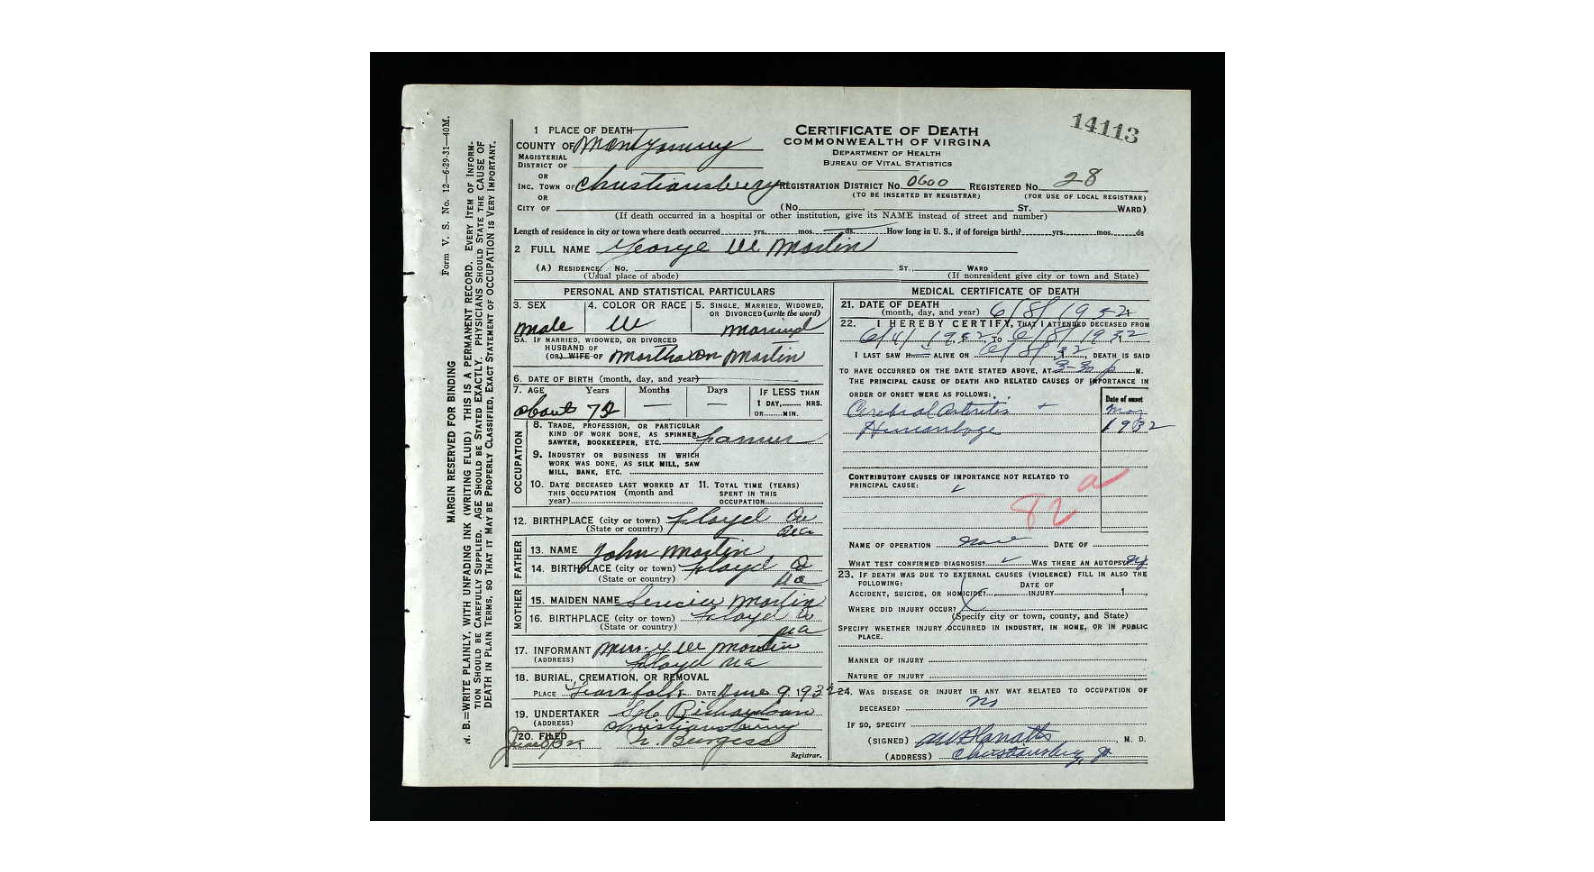 14113
1 PLACE OF DEATH
CERTIFICATE OF DEATH
COUNTY OF Montgomery
COMMONWEALTH OF VIRGINIA
MAGISTERIAL
DISTRICT OF
DEPARTMENT OF HEALTH
BUREAU OF VITAL STATISTICS
OR
INC. TOWN OF Christiansburg REGISTRATION DISTRICT NO. 0600 REGISTERED NO. 28
OR (TO BE INSERTED BY REGISTRAR) (FOR USE OF LOCAL REGISTRAR)
CITY OF (No. ST. WARD)
(If death occurred in a hospital or other institution, give its NAME instead of street and number)
Length of residence in city or town where death occurred yrs. mos. ds. How long in U. S., if of foreign birth? yrs. mos. ds
2 FULL NAME George W Martin
(A) RESIDENCE No. ST. WARD
(Usual place of abode) (If nonresident give city or town and State)
PERSONAL AND STATISTICAL PARTICULARS
3. SEX 4. COLOR OR RACE 5. SINGLE, MARRIED, WIDOWED,
OR DIVORCED (write the word)
male W married
5A. IF MARRIED, WIDOWED, OR DIVORCED
HUSBAND OF
(OR) WIFE OF Martha Martin
6. DATE OF BIRTH (month, day, and year)
7. AGE Years Months Days IF LESS THAN
1 DAY, HRS.
OR MIN.
about 72 — —
OCCUPATION
8. TRADE, PROFESSION, OR PARTICULAR
KIND OF WORK DONE, AS SPINNER,
SAWYER, BOOKKEEPER, ETC. farmer
9. INDUSTRY OR BUSINESS IN WHICH
WORK WAS DONE, AS SILK MILL, SAW
MILL, BANK, ETC.
10. DATE DECEASED LAST WORKED AT 11. TOTAL TIME (YEARS)
THIS OCCUPATION (month and SPENT IN THIS
year) OCCUPATION
12. BIRTHPLACE (city or town) Floyd Co
(State or country) Va
FATHER
13. NAME John Martin
14. BIRTHPLACE (city or town) Floyd Co
(State or country) Va
MOTHER
15. MAIDEN NAME Martin
16. BIRTHPLACE (city or town) Floyd Co
(State or country) Va
17. INFORMANT Mrs. G W Martin
(ADDRESS) Floyd Va
18. BURIAL, CREMATION, OR REMOVAL
PLACE DATE June 9, 1932
19. UNDERTAKER Richardson
(ADDRESS) Christiansburg
20. FILED
Burgess
Registrar.
MEDICAL CERTIFICATE OF DEATH
21. DATE OF DEATH
(month, day, and year) 6/8/1932
22. I HEREBY CERTIFY, THAT I ATTENDED DECEASED FROM
6/4/1932 TO 6/8/1932
I LAST SAW H ALIVE ON 6/8/32, DEATH IS SAID
TO HAVE OCCURRED ON THE DATE STATED ABOVE, AT 3-30 p M.
THE PRINCIPAL CAUSE OF DEATH AND RELATED CAUSES OF IMPORTANCE IN
ORDER OF ONSET WERE AS FOLLOWS:
Date of onset
Cerebral Arteritis + May
Hemorrhage 1932
CONTRIBUTORY CAUSES OF IMPORTANCE NOT RELATED TO
PRINCIPAL CAUSE:
82 a
NAME OF OPERATION None DATE OF
WHAT TEST CONFIRMED DIAGNOSIS? WAS THERE AN AUTOPSY? No
23. IF DEATH WAS DUE TO EXTERNAL CAUSES (VIOLENCE) FILL IN ALSO THE
FOLLOWING:
DATE OF
ACCIDENT, SUICIDE, OR HOMICIDE? INJURY 1
WHERE DID INJURY OCCUR?
(Specify city or town, county, and State)
SPECIFY WHETHER INJURY OCCURRED IN INDUSTRY, IN HOME, OR IN PUBLIC
PLACE.
MANNER OF INJURY
NATURE OF INJURY
24. WAS DISEASE OR INJURY IN ANY WAY RELATED TO OCCUPATION OF
DECEASED? No
IF SO, SPECIFY
(SIGNED) , M. D.
(ADDRESS) Christiansburg, Va
MARGIN RESERVED FOR BINDING
Form V. S. No. 12—6-29-31—40M.
N. B.—WRITE PLAINLY, WITH UNFADING INK (WRITING FLUID) THIS IS A PERMANENT RECORD. EVERY ITEM OF INFORM-
TION SHOULD BE CAREFULLY SUPPLIED. AGE SHOULD BE STATED EXACTLY. PHYSICIANS SHOULD STATE THE CAUSE OF
DEATH IN PLAIN TERMS, SO THAT IT MAY BE PROPERLY CLASSIFIED, EXACT STATEMENT OF OCCUPATION IS VERY IMPORTANT.